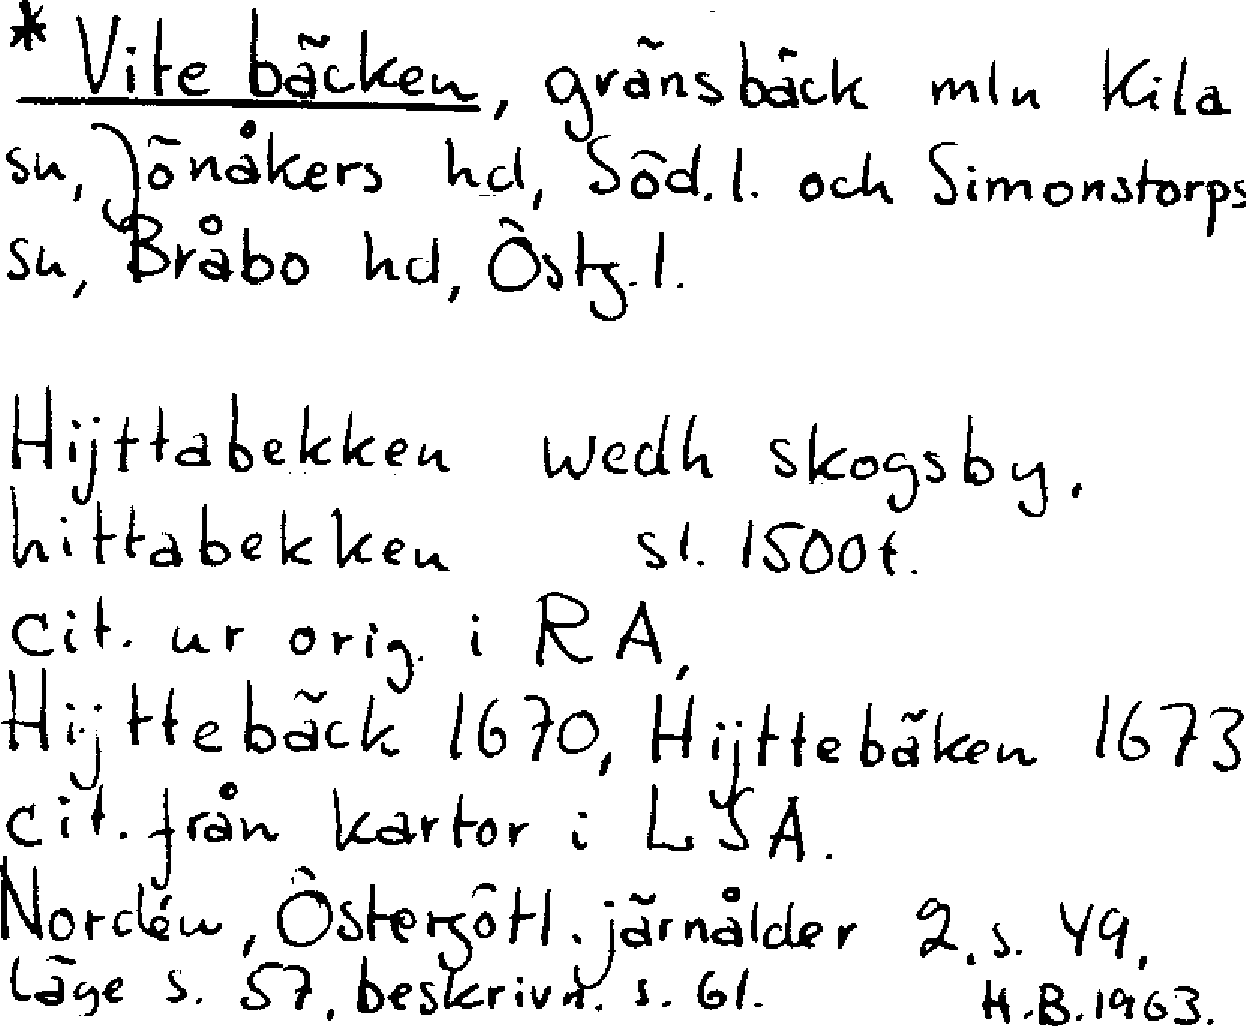 * Vite bäcken, gränsbäck mln Kila
sn, Jönåkers hd, Söd. l. och Simonstorps
sn, Bråbo hd, Östg. l.
Hijttabekken wedh skogsby.
hittabekken sl. 1500t.
cit. ur orig. i RA,
Hijttebäck 1670, Hijttebäken 1673
cit. från kartor i LSA.
Nordén, Östergötl. järnålder 2, s. 49,
Läge s. 57, beskrivn. s. 61.
H.B. 1963.